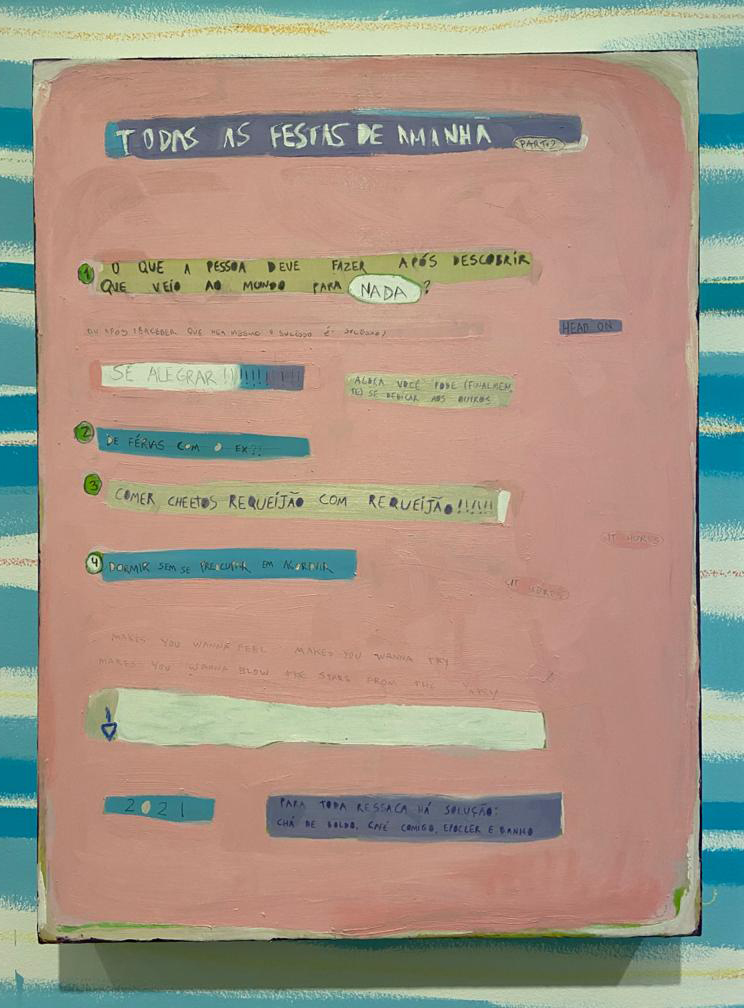 TODAS AS FESTAS DE AMANHÃ
PART 2
1 O QUE A PESSOA DEVE FAZER APÓS DESCOBRIR
QUE VEIO AO MUNDO PARA NADA?
OU APÓS PERCEBER QUE NEM MESMO O SUCESSO É SUCESSO?
HEAD ON
SE ALEGRAR!!!!!!!!
AGORA VOCÊ PODE (FINALMEN
TE) SE DEDICAR AOS OUTROS
2 DE FÉRIAS COM O EX?!
3 COMER CHEETOS REQUEIJÃO COM REQUEIJÃO!!!!!
IT HURTS
4 DORMIR SEM SE PREOCUPAR EM ACORDAR
IT HURTS
MAKES YOU WANNA FEEL MAKES YOU WANNA TRY
MAKES YOU WANNA BLOW THE STARS FROM THE SKY
2021
PARA TODA RESSACA HÁ SOLUÇÃO:
CHÁ DE BOLDO, CAFÉ COMIGO, EPOCLER E BANHO